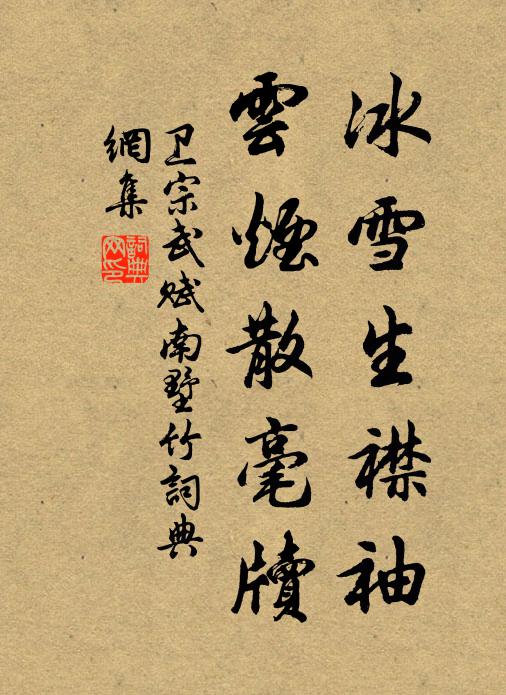 冰雪生襟袖
雲煙散毫牘
卫宗武赋南墅竹詞典
網集
詞典
网印